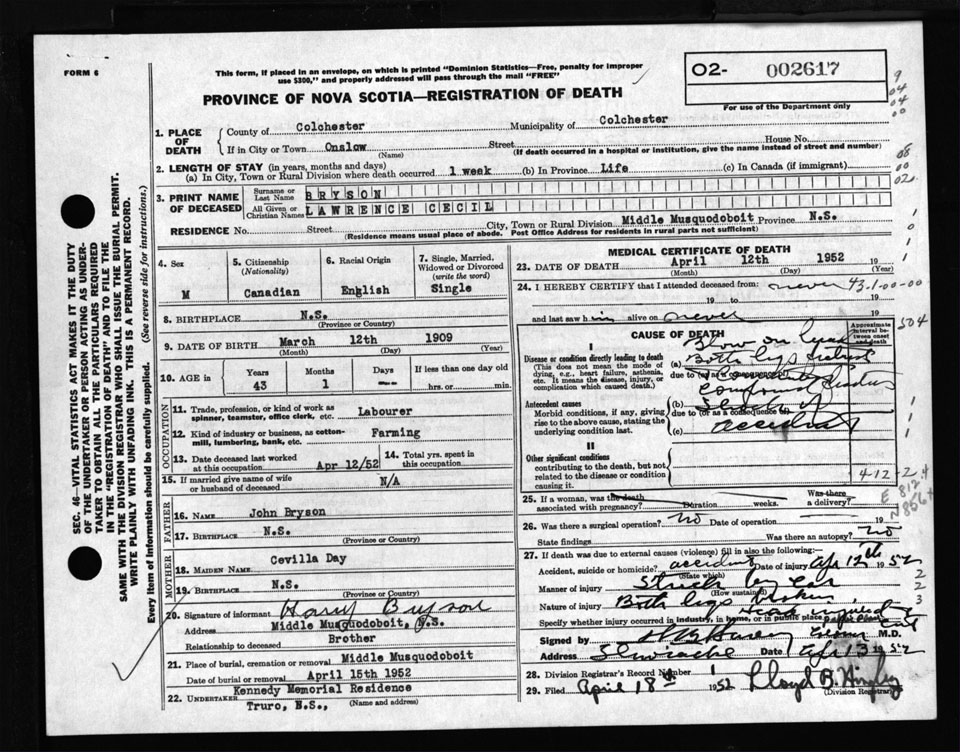 FORM 6
This form, if placed in an envelope, on which is printed "Dominion Statistics—Free, penalty for improper
use $300," and properly addressed will pass through the mail "FREE"
O2- 002617
For use of the Department only
PROVINCE OF NOVA SCOTIA—REGISTRATION OF DEATH
1. PLACE OF DEATH
County of Colchester Municipality of Colchester
If in City or Town Onslow Street House No.
(Name) (If death occurred in a hospital or institution, give the name instead of street and number)
2. LENGTH OF STAY (in years, months and days)
(a) In City, Town or Rural Division where death occurred 1 week (b) In Province Life (c) In Canada (if immigrant)
3. PRINT NAME OF DECEASED
Surname or Last Name BRYSON
All Given or Christian Names LAWRENCE CECIL
RESIDENCE No. Street City, Town or Rural Division Middle Musquodoboit Province N.S.
(Residence means usual place of abode. Post Office Address for residents in rural parts not sufficient)
4. Sex M
5. Citizenship (Nationality) Canadian
6. Racial Origin English
7. Single, Married, Widowed or Divorced (write the word) Single
8. BIRTHPLACE N.S.
(Province or Country)
9. DATE OF BIRTH March 12th 1909
(Month) (Day) (Year)
10. AGE in Years 43 Months 1 Days --- If less than one day old hrs. or min.
OCCUPATION
11. Trade, profession, or kind of work as spinner, teamster, office clerk, etc. Labourer
12. Kind of industry or business, as cotton-mill, lumbering, bank, etc. Farming
13. Date deceased last worked at this occupation Apr 12/52
14. Total yrs. spent in this occupation
15. If married give name of wife or husband of deceased N/A
FATHER
16. NAME John Bryson
17. BIRTHPLACE N.S.
(Province or Country)
MOTHER
18. MAIDEN NAME Cevilla Day
19. BIRTHPLACE N.S.
(Province or Country)
20. Signature of informant Harry Bryson
Address Middle Musquodoboit, N.S.
Relationship to deceased Brother
21. Place of burial, cremation or removal Middle Musquodoboit
Date of burial or removal April 15th 1952
22. UNDERTAKER Kennedy Memorial Residence
Truro, N.S., (Name and address)
MEDICAL CERTIFICATE OF DEATH
23. DATE OF DEATH April 12th 1952 19
(Month) (Day) (Year)
24. I HEREBY CERTIFY that I attended deceased from: never 43-1-00-00
19 to 19
and last saw him alive on never 19
CAUSE OF DEATH
Approximate interval between onset and death
I
Disease or condition directly leading to death
(This does not mean the mode of dying, e.g., heart failure, asthenia, etc. It means the disease, injury, or complication which caused death.)
(a) Blow on head
Both legs
due to (or as a consequence of)
Antecedent causes
Morbid conditions, if any, giving rise to the above cause, stating the underlying condition last.
(b)
due to (or as a consequence of)
(c) accident
II
Other significant conditions
contributing to the death, but not related to the disease or condition causing it.
4-12-2
25. If a woman, was the death associated with pregnancy? Duration weeks. Was there a delivery?
26. Was there a surgical operation? no Date of operation 19
State findings Was there an autopsy? no
27. If death was due to external causes (violence) fill in also the following:
Accident, suicide or homicide? accident Date of injury Apr 12th 1952
(State which)
Manner of injury Struck by car
(How sustained)
Nature of injury Both legs broken Head injured
Specify whether injury occurred in industry, in home, or in public place
Signed by M.D.
Address Date Apr 13 1952
28. Division Registrar's Record Number 1
29. Filed April 18th 1952 Lloyd B.
(Division Registrar)
SEC. 46—VITAL STATISTICS ACT MAKES IT THE DUTY
OF THE UNDERTAKER OR PERSON ACTING AS UNDER-
TAKER TO OBTAIN ALL THE PARTICULARS REQUIRED
IN THE "REGISTRATION OF DEATH" AND TO FILE THE
SAME WITH THE DIVISION REGISTRAR WHO SHALL ISSUE THE BURIAL PERMIT.
WRITE PLAINLY WITH UNFADING INK. THIS IS A PERMANENT RECORD.
Every item of Information should be carefully supplied. (See reverse side for instructions.)